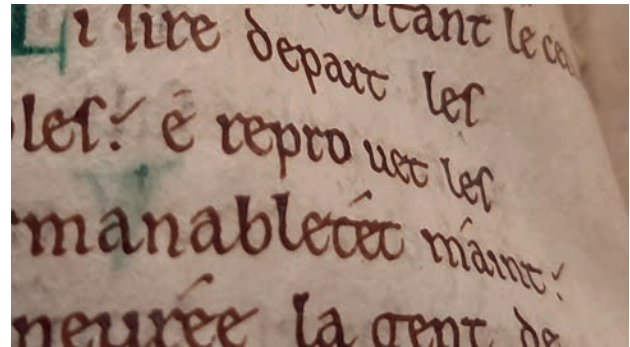 le
Li ſire depart leſ
leſ: é repro uet leſ
manabletét maint:
neurée la gent de